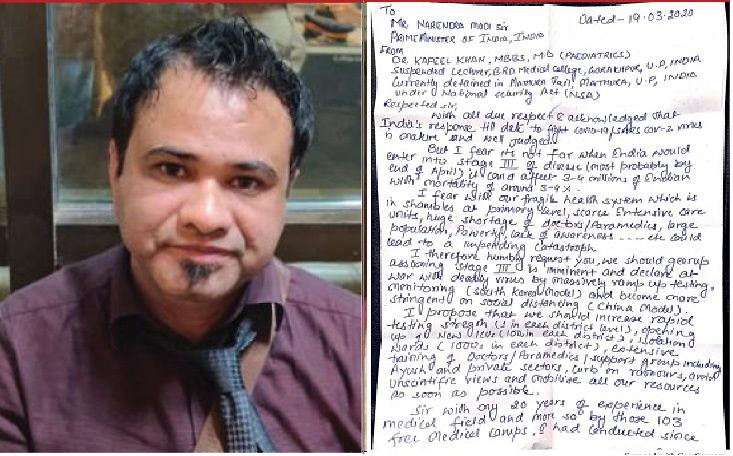 To
Dated- 19.03.2020
Mr. NARENDRA MODI Sir
PRIME MINISTER OF INDIA, INDIA
From
Dr KAFEEL KHAN, MBBS, MD (PAEDIATRICS)
Suspended Lecturer, BRD Medical College, GORAKHPUR, U.P, INDIA
Currently detained in Mathura Jail, MATHURA, U.P, INDIA
under National security Act (NSA)
Respected Sir,
With all due respect & acknowledged that
India's response till date to fight COVID-19/SARS COV-2 virus
is mature and well judged.
But I fear its not far when India would
enter into stage III of disease (most probably by
end of April) is could affect 3-4 millions of Indian
with mortality of around 3-4%.
I fear with our fragile health system which is
in shambles at primary level, scarce Intensive care
units, huge shortage of doctors/Paramedics, large
population, Poverty, lack of awareness ---- etc could
lead to a impending catastroph
I therefore humbly request you, we should gearup
assuming stage III is imminent and declare at
war with deadly virus by massively ramp up testing,
monitoring (South Korea Model) and become more
stringent on social distancing (China Model).
I propose that we should increase rapid
testing strength (1 in each district level), opening
up of New ICU (100 in each district), isolation
wards (1000s in each district), extensive
training of Doctors/Paramedics/support group including
Ayush and private sectors, curb on rumours, avoid
unscientific views and mobilise all our resources
as soon as possible.
Sir with my 20 years of experience in
medical field and more so by those 103
free Medical camps, I had conducted since